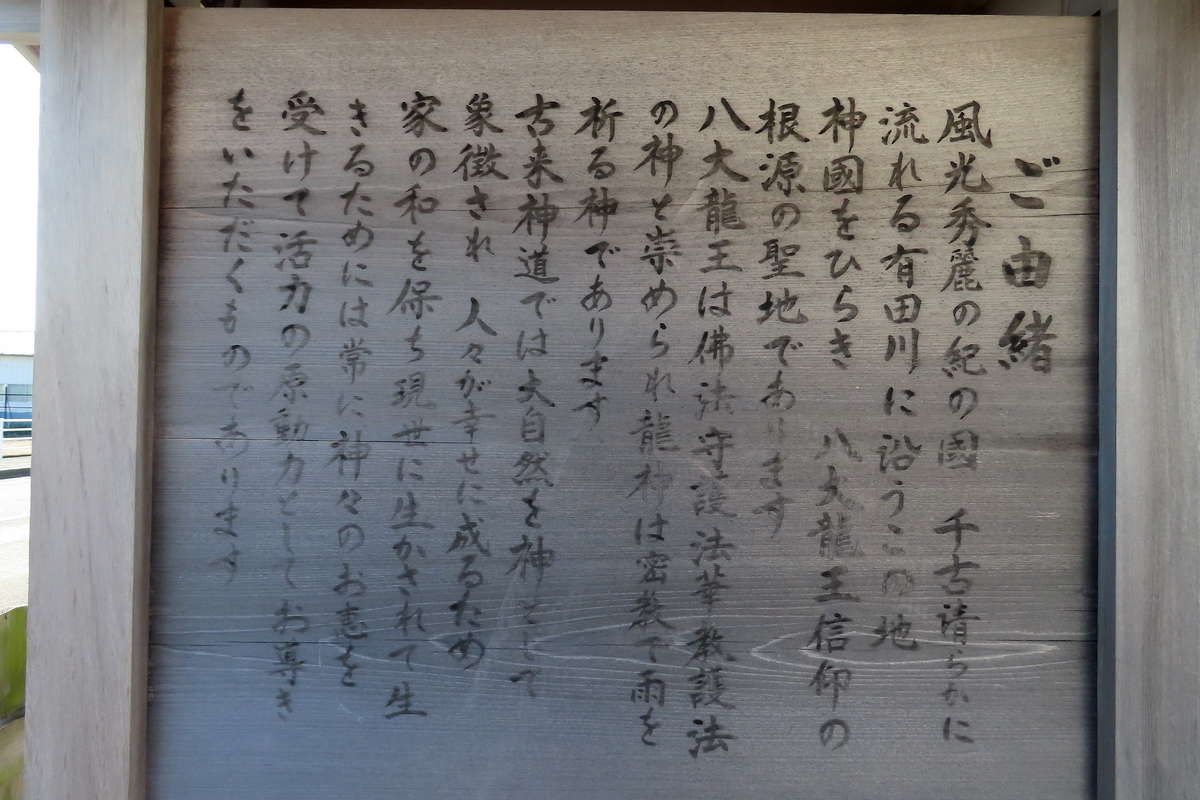 ご由緒
風光秀麗の紀の國　千古清らかに
流れる有田川に沿うこの地
神國をひらき　八大龍王信仰の
根源の聖地であります
八大龍王は佛法守護法華教護法
の神と崇められ龍神は密教で雨を
祈る神であります
古来神道では大自然を神として
象徴され　人々が幸せに成るため
家の和を保ち現世に生かされて生
きるためには常に神々のお恵を
受けて活力の原動力としてお導き
をいただくものであります